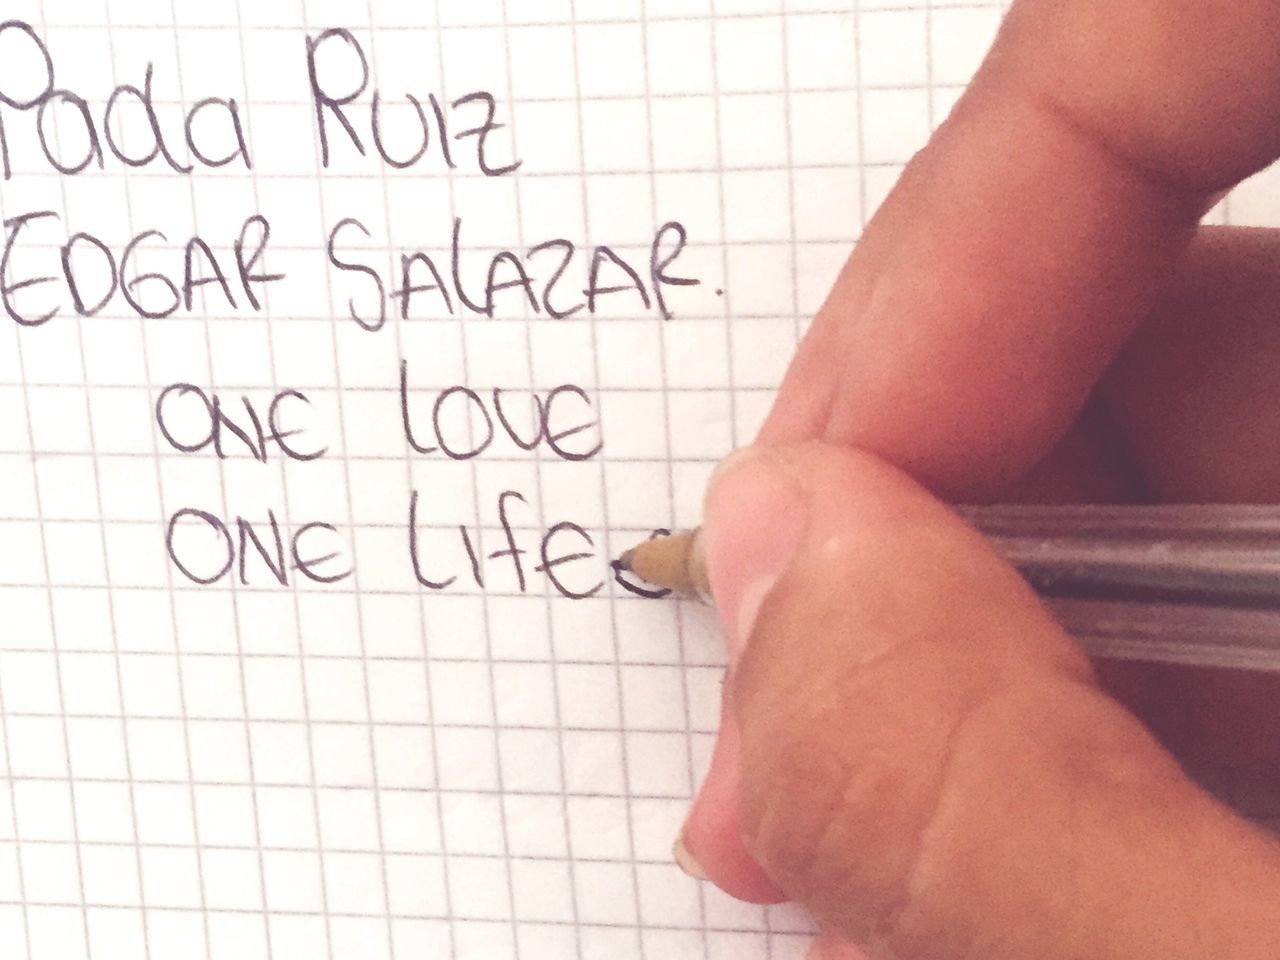 Pada Ruiz
EDGAR SALAZAR.
ONE LOVE
ONE LIFE